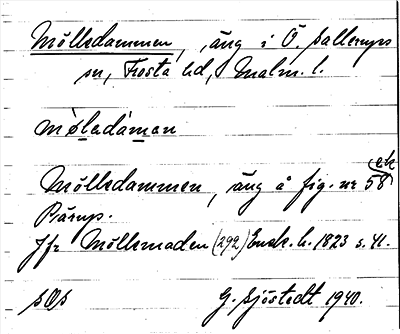 Mölledammen, äng i Ö. Sallerups
sn, Frosta hd, Malm. l.
mòledáman
Mölledammen, äng å fig. nr 58
Pärup.
Jfr Möllemaden (292) Ensk. h. 1823 s. 41.
SOs G. Sjöstedt 1940.